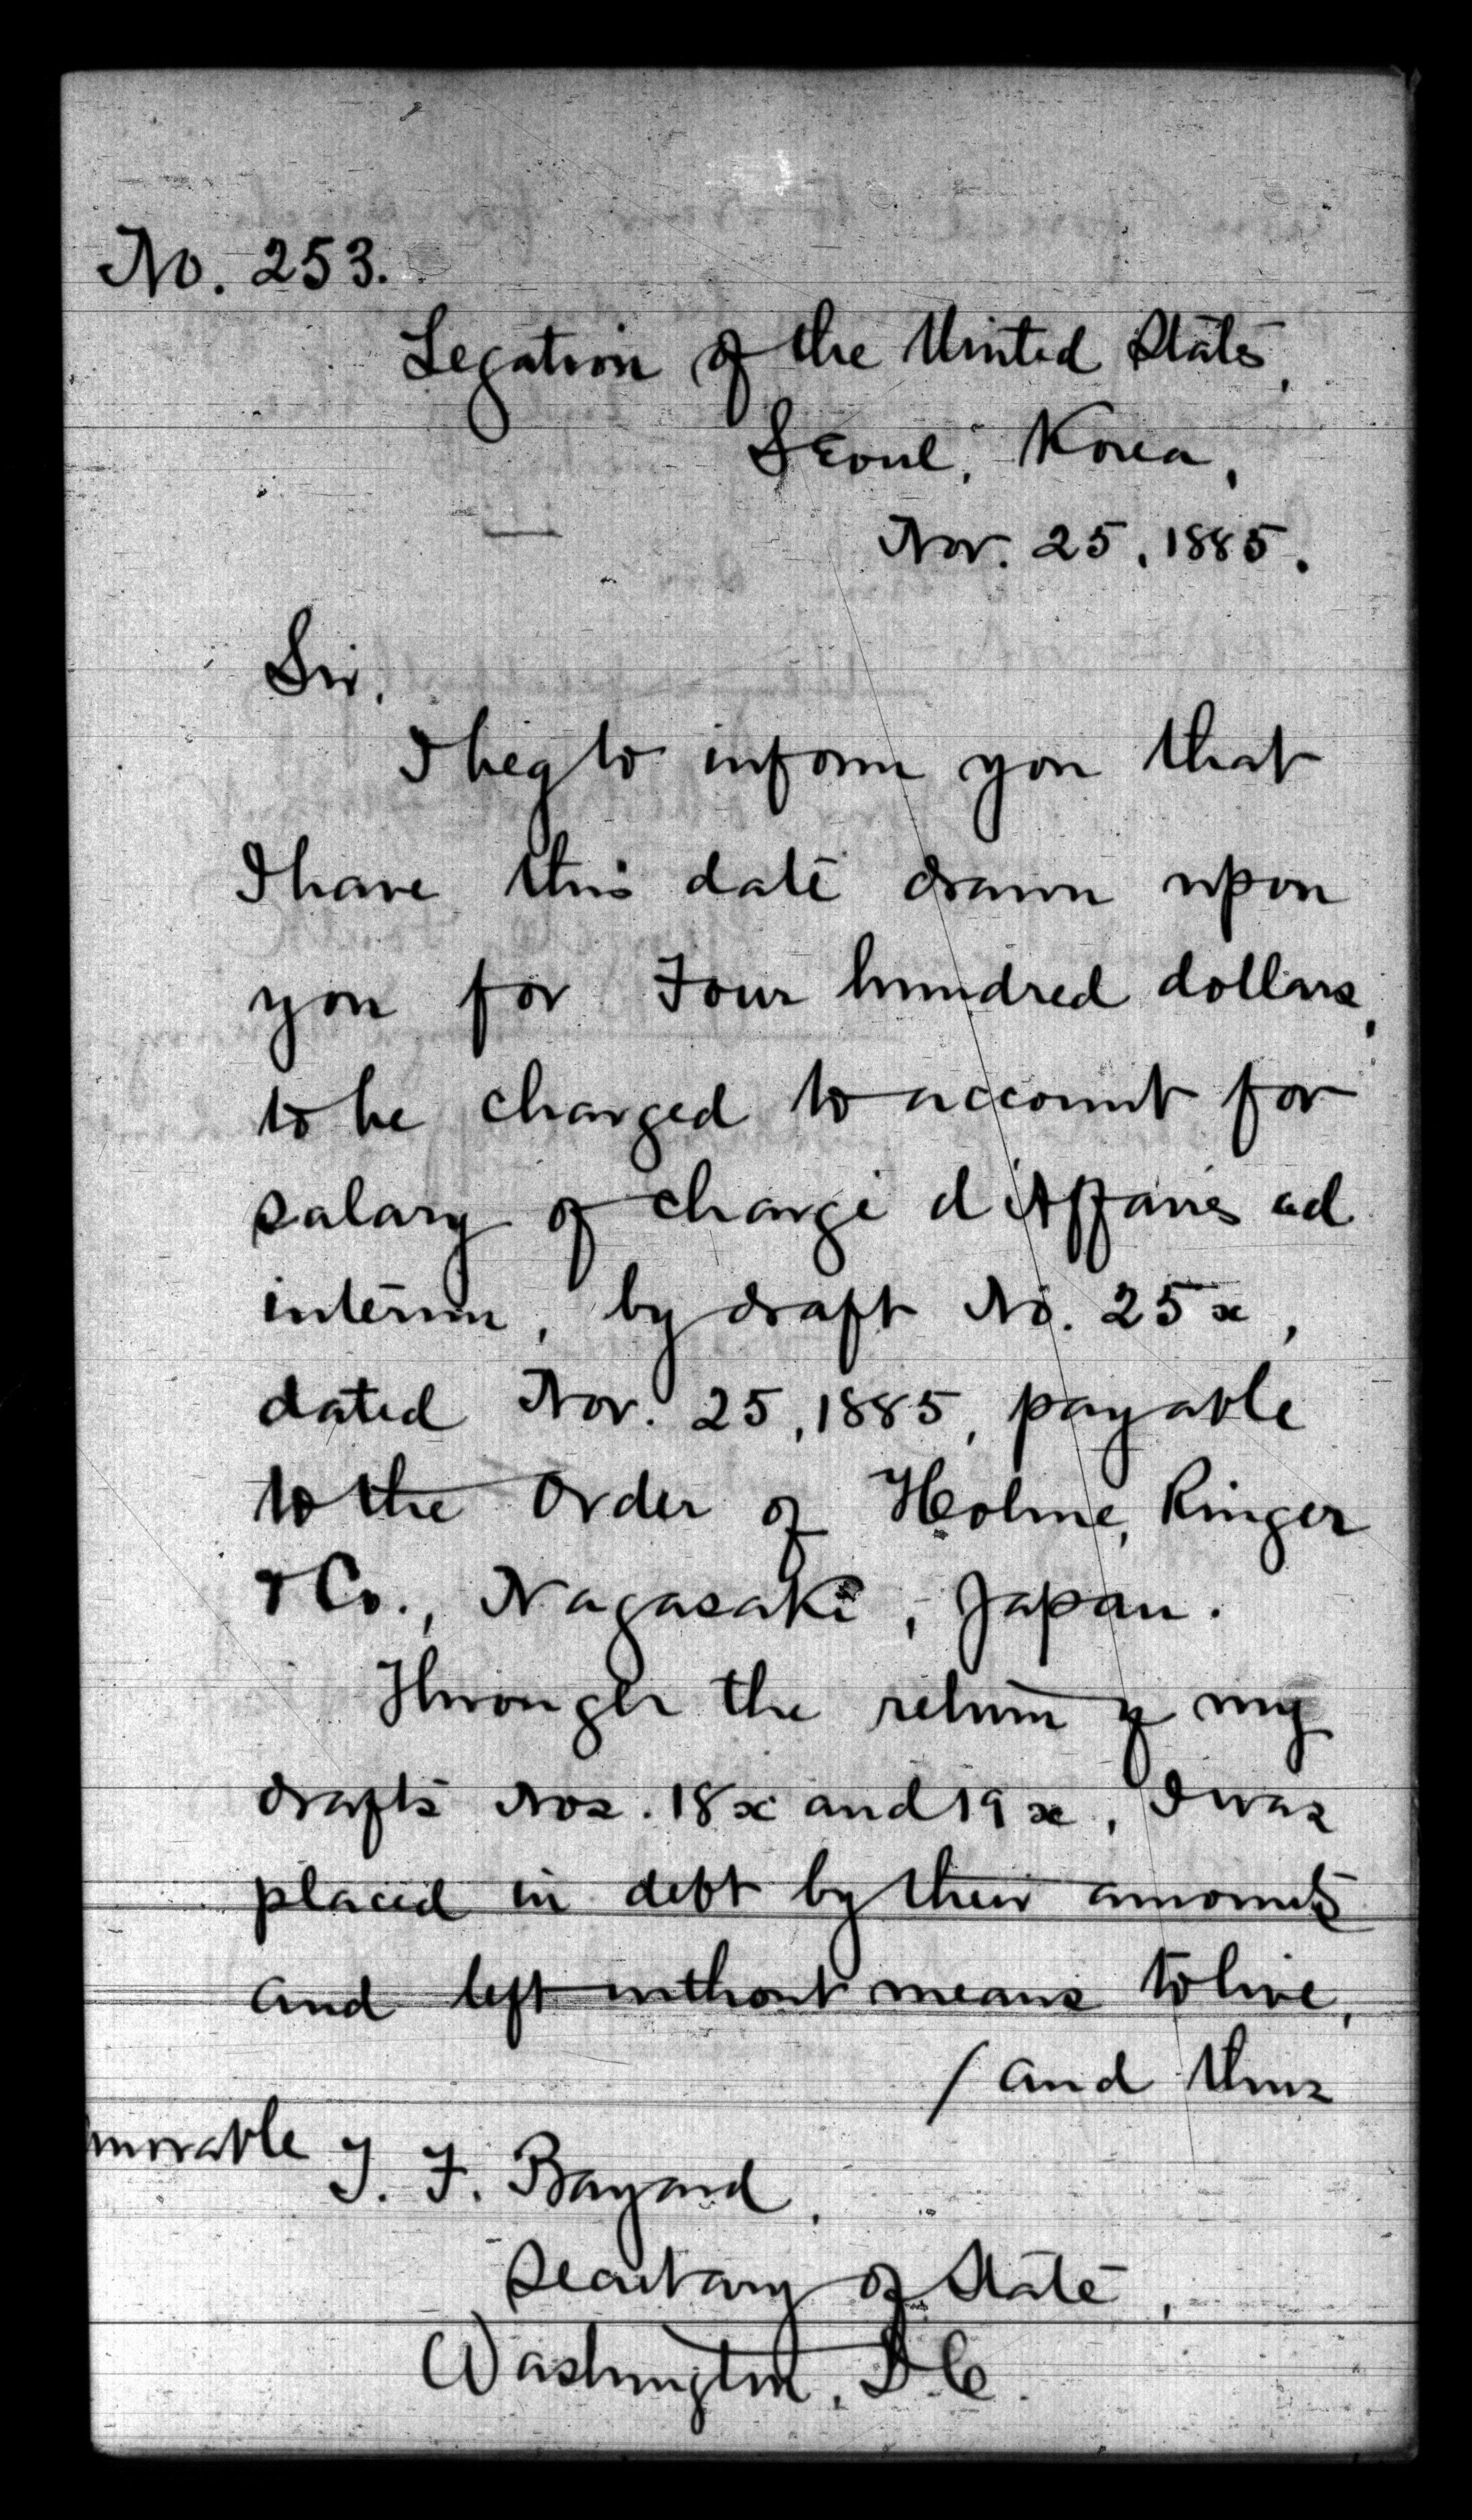 No. 253.
Legation of the United States,
Seoul, Korea,
Nov. 25, 1885.
Sir,
I beg to inform you that
I have this date drawn upon
you for Four hundred dollars,
to be charged to account for
salary of chargé d'Affaires ad
interim, by draft No. 25x,
dated Nov. 25, 1885, payable
to the order of Holme, Ringer
& Co., Nagasaki, Japan.
Through the return of my
drafts Nos. 18x and 19x, I was
placed in debt by their amounts
and left without means to live,
/ and thus
norable T. F. Bayard,
Secretary of State,
Washington, D.C.